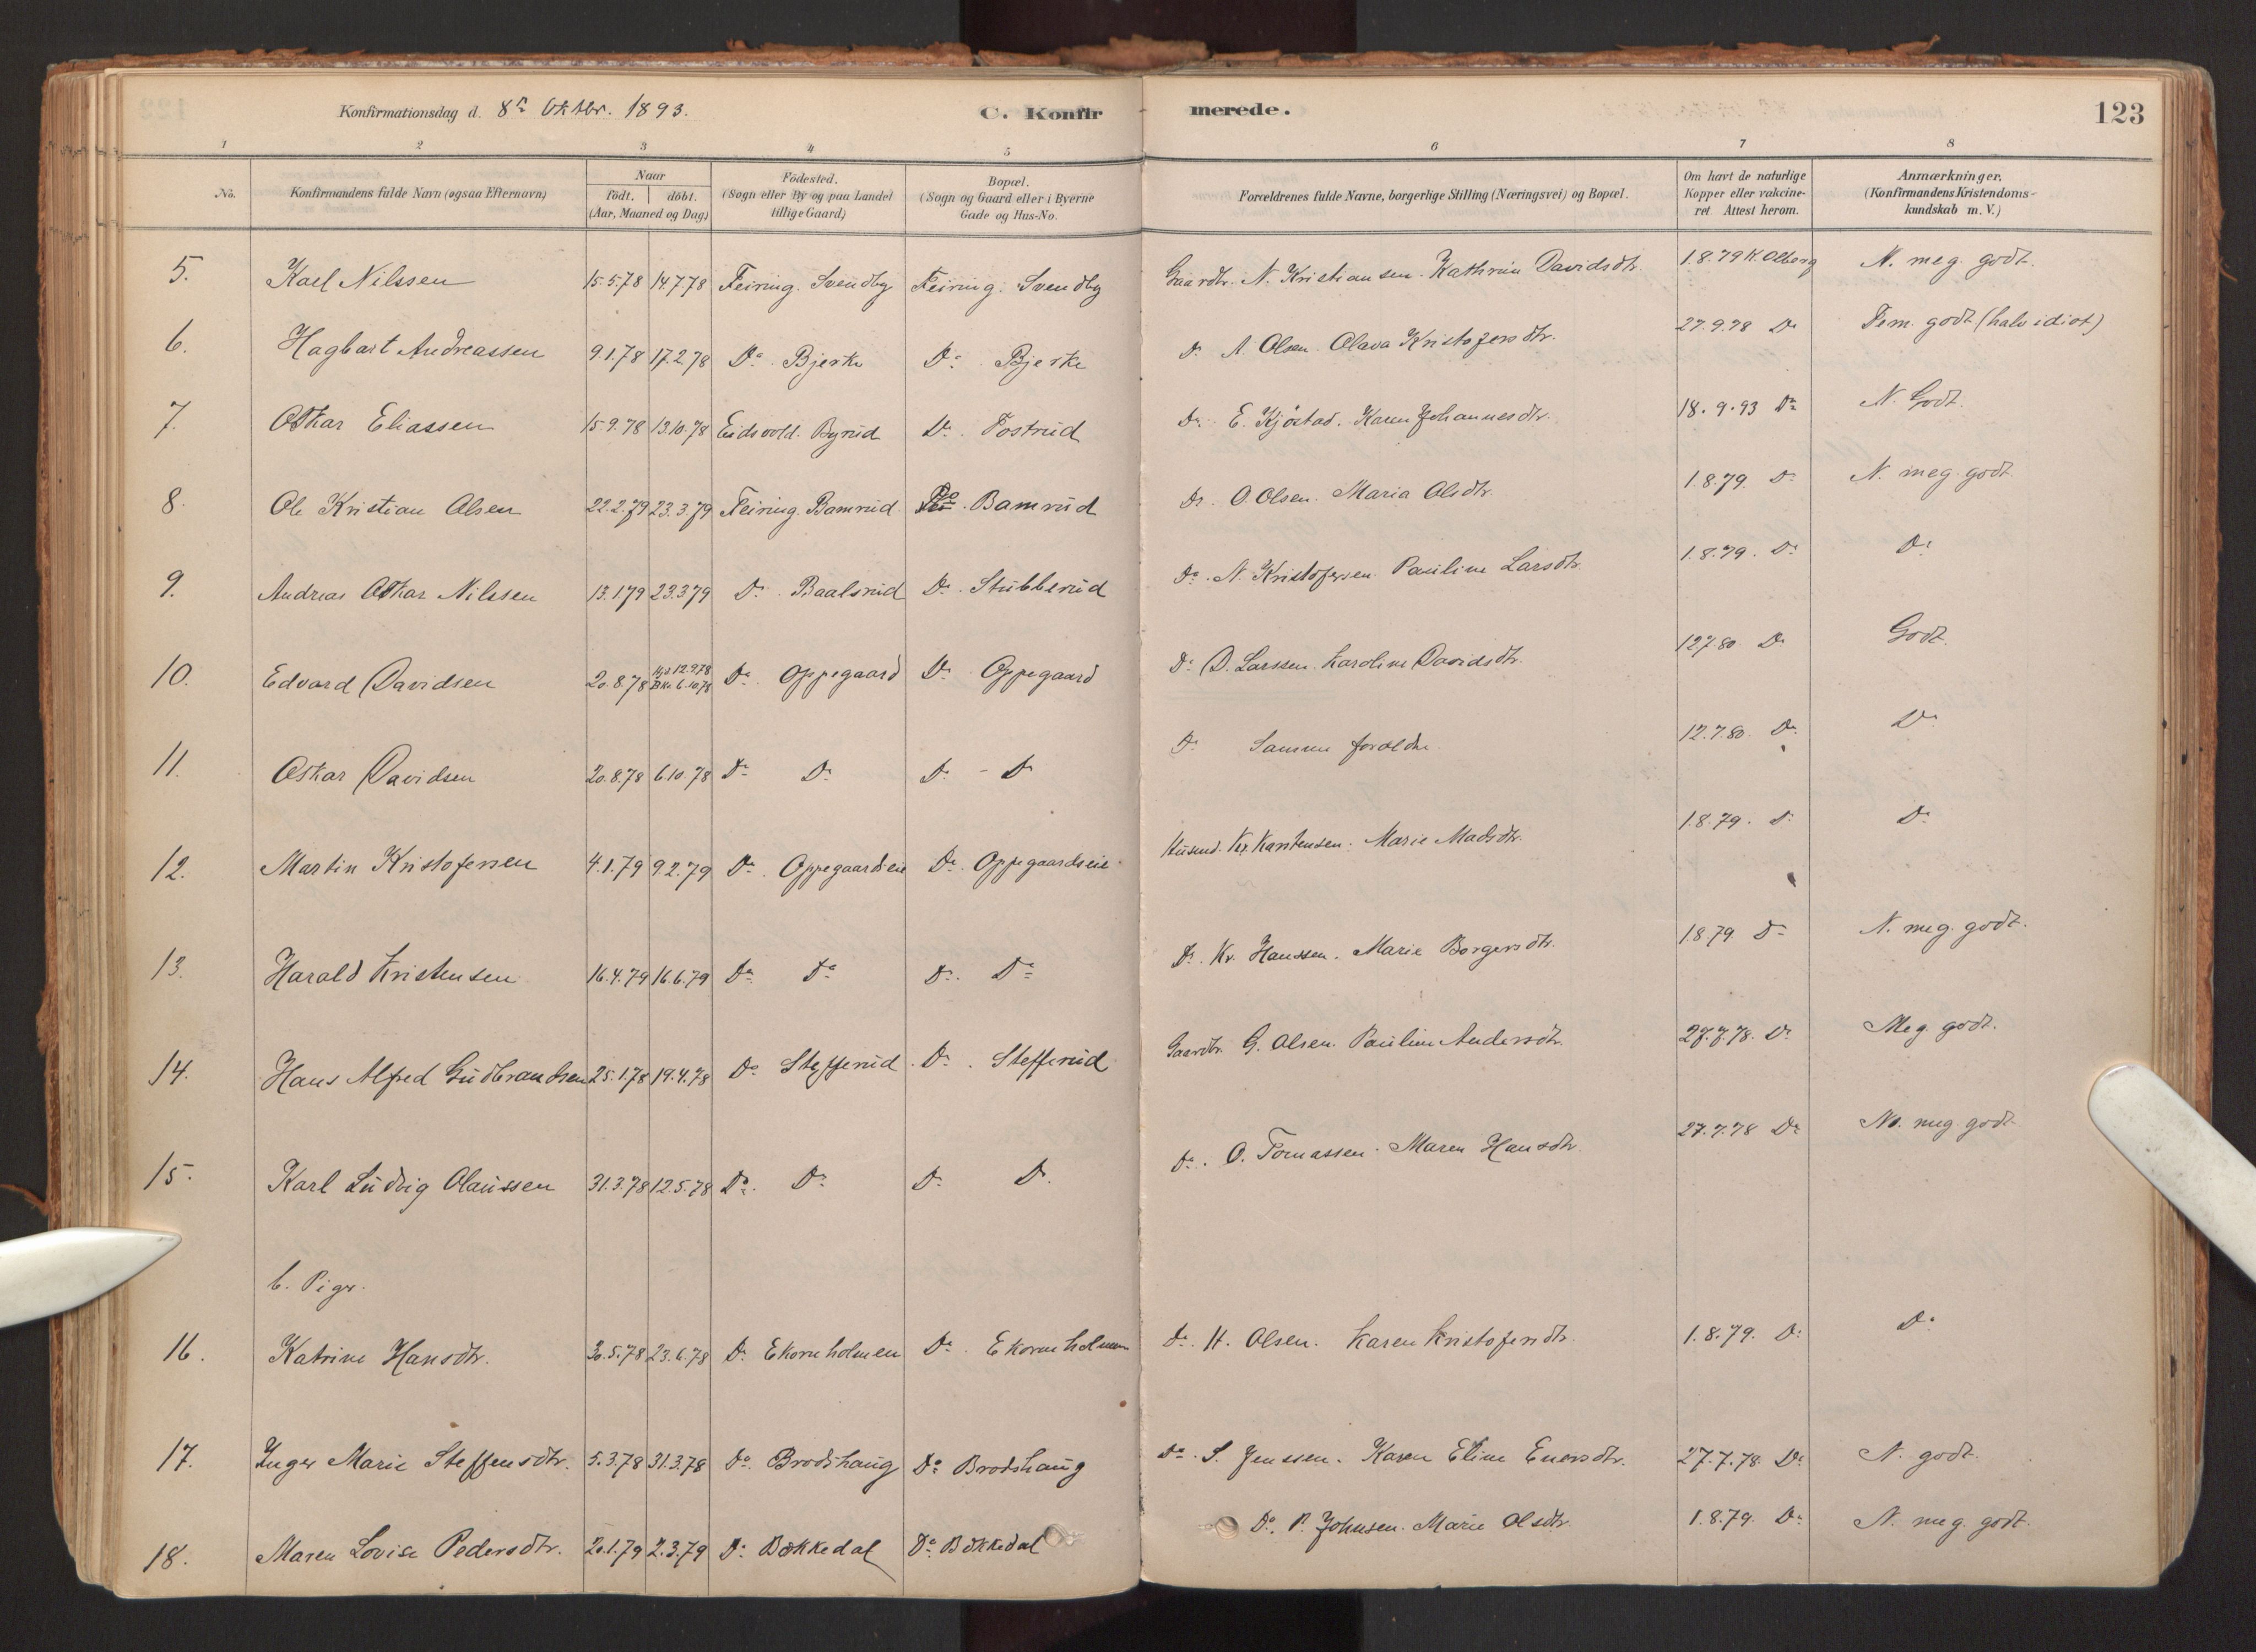 Konfirmationsdag d. 8de Oktbr. 1893.
C. Konfirmerede.
123
1 2 3 4 5 6 7 8
No.
Konfirmandens fulde Navn (ogsaa Efternavn)
Naar
født. | døbt.
(Aar, Maaned og Dag)
Födested.
(Sogn eller By og paa Landet
tillige Gaard)
Bopæl.
(Sogn og Gaard eller i Byerne
Gade og Hus-No.
Forældrenes fulde Navne, borgerlige Stilling (Næringsvei) og Bopæl.
Om havt de naturlige
Kopper eller vakcine-
ret Attest herom.
Anmærkninger.
(Konfirmandens Kristendoms-
kundskab m. V.)
5. Karl Nilssen 15.5.78 14.7.78 Feiring. Svendby Feiring. Svendby Gaardbr. N. Kristiansen. Kathrine Davidsdtr. 1.8.79 K. Olberg N. meg. godt.
6. Hagbart Andreassen 9.1.78 17.2.78 Do. Bjerke Do. Bjerke Do A. Olsen. Olava Kristofersdtr. 27.9.78 Do Tem. godt (halv idiot)
7. Oskar Eliassen 15.9.78 13.10.78 Eidsvold. Byrud Do. Tostrud Do. E. Kjøstad. Karen Johannesdtr. 18.9.93 Do N. Godt.
8. Ole Kristian Olsen 22.2.79 23.3.79 Feiring. Bamrud Do. Bamrud Do. O. Olsen. Maria Olsdtr. 1.8.79. Do N. meg. godt.
9. Andreas Oskar Nilssen 13.1.79 23.3.79 Do. Baalsrud Do. Stubberud Do. N. Kristofersen. Pauline Larsdtr. 1.8.79. Do Do
10. Edvard Davidsen 20.8.78 Hjd 12.9.78 Bkr. 6.10.78 Do. Oppegaard Do. Oppegaard Do D. Larssen. Karoline Davidsdtr. 12.7.80 Do Godt.
11. Oskar Davidsen 20.8.78 6.10.78 Do Do Do - Do Do Samme forældre. 12.7.80. Do Do
12. Martin Kristofersen 4.1.79 9.2.79 Do. Oppegaardseie Do. Oppegaardseie Husmd. Kr. Karstensen. Marie Madsdtr. 1.8.79. Do Do
13. Harald Kristensen 16.4.79 16.6.79 Do Do Do. Do Do. Kr. Hanssen. Marie Borgersdtr. 1.8.79 Do N. meg. godt.
14. Hans Alfred Gudbrandsen 25.1.78 19.4.78 Do Stefferud Do. Stefferud Gaardbr. G. Olsen. Pauline Andersdtr. 27.7.78. Do Meg. godt.
15. Karl Ludvig Olaussen 31.3.78 12.5.78 Do. Do Do Do. Do. O. Tomassen. Maren Hansdtr. 27.7.78 Do No. meg. godt
b. Piger.
16. Katrine Hansdtr. 30.5.78 23.6.78 Do Ekornholmen Do. Ekornholmen Do. H. Olsen. Karen Kristofersdtr. 1.8.79. Do Do
17. Inger Marie Steffensdtr. 5.3.78 31.3.78 Do. Brodshaug Do Brodshaug Do. S. Jenssen. Karen Eline Enersdtr. 27.7.78. Do N. godt.
18. Maren Lovise Pedersdtr. 20.1.79 2.3.79 Do Bækkedal Do. Bækkedal Do. P. Johnsen. Marie Olsdtr. 1.8.79. Do N. meg. godt.